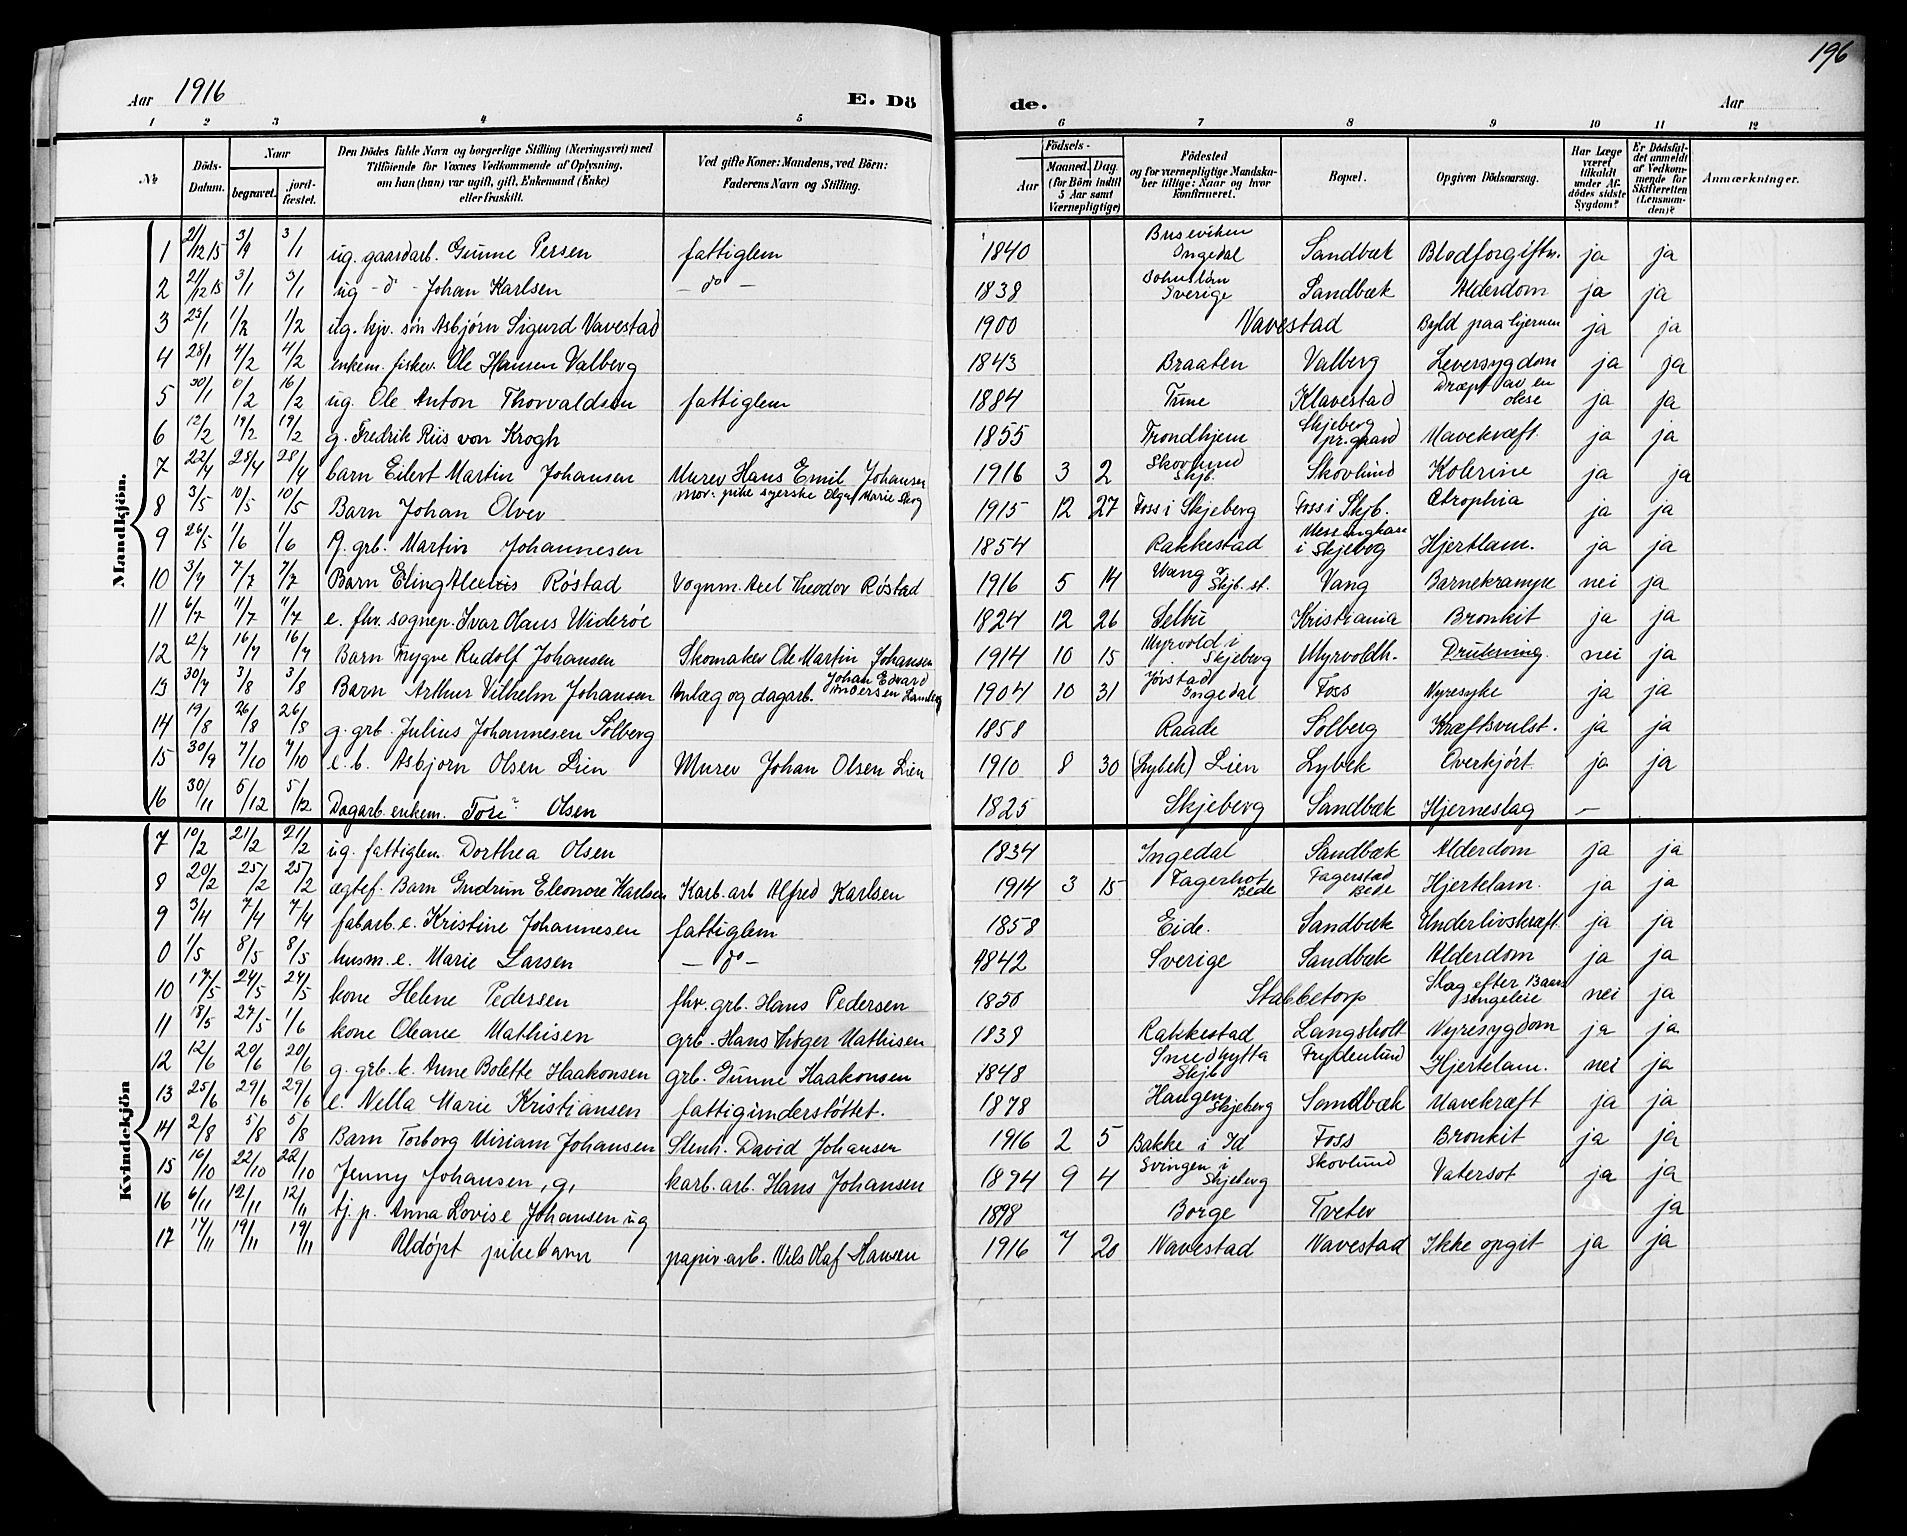 196
Aar 1916
E. Dö
de.
Aar
1 2 3 4 5 6 7 8 9 10 11 12
№
Döds-Datum.
Naar
begravet.
jord-fæstet.
Den Dödes fulde Navn og borgerlige Stilling (Næringsvei) med
Tilföiende for Voxnes Vedkommende af Oplysning,
om han (hun) var ugift, gift, Enkemand (Enke)
eller fraskilt.
Ved gifte Koner: Mandens, ved Börn:
Faderens Navn og Stilling.
Födsels-
Aar
Maaned. Dag.
(for Börn indtil
5 Aar samt
Værnepligtige)
Födested
og for værnepligtige Mandska-
ber tillige: Naar og hvor
konfirmeret.
Bopæl.
Opgiven Dödsaarsag.
Har Læge
været
tilkaldt
under Af-
dödes sidste
Sygdom?
Er Dödsfal-
det anmeldt
af Vedkom-
mende for
Skifteretten
(Lensman-
den)?
Anmærkninger.
Mandkjön.
1 21/12 15 3/1 3/1 ug. gaardarb. Gunne Persen fattiglem 1840 Buseviken Ingedal Sandbæk Blodforgiftn. ja ja
2 21/12 15 3/1 3/1 ug - d° - Johan Karlsen - d° - 1838 Bohuslän Sverige Sandbæk Alderdom ja ja
3 23/1 1/2 1/2 ug. hjv. søn Asbjørn Sigurd Navestad 1900 Navestad Byld paa hjernen ja ja
4 28/1 4/2 4/2 enkem. fisker. Ole Hansen Valberg 1843 Braaten Valberg Leversygdom ja ja
5 30/1 /2 16/2 ug. Ole Anton Thorvaldsen fattiglem 1884 Tune Klavestad Dræpt av en okse ja ja
6 12/2 19/2 19/2 g. Fredrik Riis von Krogh 1855 Trondhjem Skjeberg pr.gaard Mavekræft. ja ja
7 22/4 28/4 28/4 barn Eilert Martin Johansen Murer Hans Emil Johansen 1916 3 2 Skovlund Skjb. Skovlund Kolerine ja ja
8 3/5 10/5 10/5 Barn Johan Olver mor: pike syerske Olga Marie 1915 12 27 Foss i Skjeberg Foss i Skjb. Atrophia ja ja
9 26/5 1/6 1/6 g. grb. Martin Johannesen 1854 Rakkestad i Skjeberg Hjertlam. ja ja
10 3/7 7/7 7/7 Barn Eling Alexis Røstad Vognm. Axel Theodor Røstad 1916 5 14 Wang v. Skjb. st. Vang Barnekrampe nei ja
11 6/7 11/7 11/7 e. fhv. sognep. Ivar Olaus Widerøe 1824 12 26 Selbu Kristiania Bronkit ja ja
12 12/7 16/7 16/7 Barn Trygve Rudolf Johansen Skomaker Ole Martin Johansen 1914 10 15 Myrvold i Skjeberg Myrvoldh. Drukning. nei ja
13 30/7 3/8 3/8 Barn Arthur Vilhelm Johansen Anlæg og dagarb. Johan Edvard Andersen 1904 10 31 Jørstad Ingedal Foss Nyresyke ja ja
14 19/8 26/8 26/8 g. grb. Julius Johannesen Solberg 1858 Raade Solberg Kræftsvulst. ja ja
15 30/9 7/10 7/10 e. b. Asbjørn Olsen Lien Murer Johan Olsen Lien 1910 8 30 (Lybek) Lien Lybek Overkjørt. ja ja
16 30/11 5/12 5/12 Dagarb. enkem. Tore Olsen 1825 Skjeberg Sandbæk Hjerneslag —
Kvindekjön
7 10/2 21/2 21/2 ug. fattiglem Dorthea Olsen 1834 Ingedal Sandbæk Alderdom ja ja
8 20/2 25/2 25/2 ægtef. Barn Gudrun Eleonore Karlsen Karb. arb Alfred Karlsen 1914 3 15 Fagerhot Bede Fagerstad Bede Hjertelam. ja ja
9 3/4 7/4 7/4 fabarb. e. Kristine Johannesen fattiglem 1858 Eide. Sandbæk Underlivskræft ja ja
0 1/5 8/5 8/5 husm. e. Marie Larsen - d° - 1842 Sverige Sandbæk Alderdom ja ja
10 17/5 24/5 24/5 kone Helene Pedersen fhv. grb. Hans Pedersen 1850 Stabbetorp Slag efter Barselsengeleie nei ja
11 18/5 27/5 1/6 kone Oleane Mathisen grb. Hans Mathisen 1838 Rakkestad Langsholt Nyresygdom ja ja
12 12/6 20/6 20/6 g. grb. k. Anne Bolette Haakonsen grb. Gunne Haakonsen 1848 Smedhytta Skjb Frydenlund Hjertelam. nei ja
13 25/6 29/6 29/6 e. Nella Marie Kristiansen fattigunderstøttet. 1878 Haugen Skjeberg Sandbæk Mavekræft ja ja
14 2/8 5/8 5/8 Barn Torborg Miriam Johansen Stenh. David Johansen 1916 2 5 Bakke i Id Foss Bronkit ja ja
15 16/10 22/10 22/10 Jenny Johansen, g, karb. arb. Hans Johansen 1894 9 4 Svingen i Skjeberg Skovlund Vatersot ja ja
16 6/11 12/11 12/11 tj. p. Anna Lovise Johansen ug 1898 Borge Tveter ja
17 17/11 19/11 19/11 Udøpt pikebarn papir. arb. Nils Olaf Hansen 1916 7 20 Navestad Navestad Ikke opgit ja ja